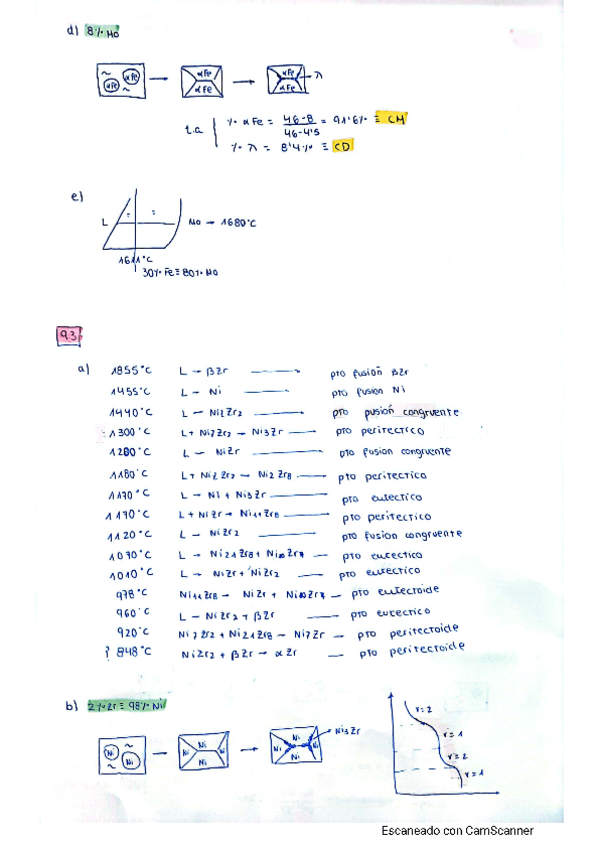 d) 8% Mo
αFe αFe → αFe αFe → αFe αFe → λ
t.a % αFe = 46-8 / 46-4'5 = 91'6% ≡ CM
% λ = 8'4% ≡ CD
e)
L Mo → 1680°C
1611°C
30% Fe ≡ 80% Mo
93
a) 1855°C L → βZr → pto fusión βZr
1455°C L → Ni → pto fusion Ni
1440°C L → Ni7Zr2 → pto pusión congruente
1300°C L + Ni7Zr2 → Ni3Zr → pto peritectico
1280°C L → NiZr → pto fusion congruente
1180°C L + Ni7Zr2 → Ni2Zr8 → pto peritectico
1170°C L → Ni + Ni3Zr → pto eutectico
1170°C L + NiZr → Ni11Zr8 → pto peritectico
1120°C L → NiZr2 → pto fusion congruente
1070°C L → Ni21Zr8 + Ni10Zr7 → pto eutectico
1010°C L → NiZr + NiZr2 → pto eutectico
978°C Ni11Zr8 → NiZr + Ni10Zr7 → pto eutectoide
960°C L → NiZr2 + βZr → pto eutectico
920°C Ni7Zr2 + Ni21Zr8 → Ni7Zr → pto peritectoide
? 848°C NiZr2 + βZr → αZr → pto peritectoide
b) 2% Zr ≡ 98% Ni
Ni Ni → Ni Ni Ni Ni → Ni Ni Ni Ni → Ni3Zr
v=2
v=1
v=2
v=1
Escaneado con CamScanner